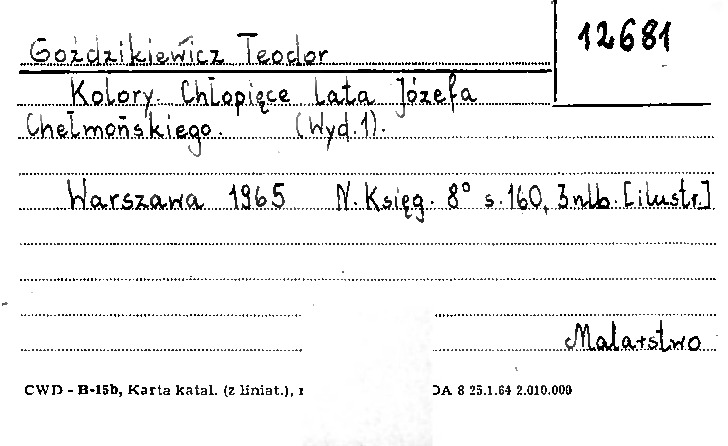 12681
Goździkiewicz Teodor
Kolory. Chłopięce lata Józefa
Chełmońskiego. (Wyd.1).
Warszawa 1965 N. Księg. 8° s.160, 3 nlb. [ilustr.]
Malarstwo
CWD - B-15b, Karta katal. (z liniat.), DA 8 25.1.64 2.010.000